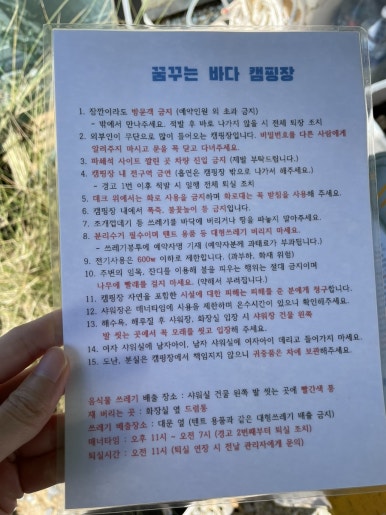 꿈꾸는 바다 캠핑장
1. 잠깐이라도 방문객 금지 (예약인원 외 초과 금지)
- 밖에서 만나주세요. 적발 후 바로 나가지 않을 시 전체 퇴장 조치
2. 외부인이 무단으로 많이 들어오는 캠핑장입니다. 비밀번호를 다른 사람에게
알려주지 마시고 문을 꼭 닫고 다녀주세요.
3. 파쇄석 사이트 깔린 곳 차량 진입 금지 (제발 부탁드립니다.)
4. 캠핑장 내 전구역 금연 (흡연은 캠핑장 밖으로 나가서 해주세요.)
- 경고 1번 이후 적발 시 일행 전체 퇴실 조치
5. 데크 위에서는 화로 사용을 금지하며 화로대는 꼭 받침을 사용해 주세요.
6. 캠핑장 내에서 폭죽, 불꽃놀이 등 금지입니다.
7. 조개껍데기 등 쓰레기를 바닥에 버리거나 땅을 파놓지 말아주세요.
8. 분리수거 필수이며 텐트 용품 등 대형쓰레기 버리지 마세요.
- 쓰레기봉투에 예약자명 기재 (예약자분께 과태료가 부과됩니다.)
9. 전기사용은 600w 이하로 제한합니다. (과부하, 화재 위험)
10. 주변의 임목, 잔디를 이용해 불을 피우는 행위는 절대 금지이며
나무에 빨래를 걸지 마세요. (약해서 부러집니다.)
11. 캠핑장 자연을 포함한 시설에 대한 피해는 피해를 준 분에게 청구합니다.
12. 샤워장은 매너타임에 사용을 제한하며 온수시간이 있으니 확인해주세요.
13. 해수욕, 해루질 후 샤워장, 화장실 입장 시 샤워장 건물 왼쪽
발 씻는 곳에서 꼭 모래를 씻고 입장해 주세요.
14. 여자 샤워실에 남자아이, 남자 샤워실에 여자아이 데리고 들어가지 마세요.
15. 도난, 분실은 캠핑장에서 책임지지 않으니 귀중품은 차에 보관해주세요.
음식물 쓰레기 배출 장소 : 샤워실 건물 왼쪽 발 씻는 곳에 빨간색 통
재 버리는 곳 : 화장실 옆 드럼통
쓰레기 배출장소 : 대문 옆 (텐트 용품과 같은 대형쓰레기 배출 금지)
매너타임 : 오후 11시 ~ 오전 7시 (경고 2번째부터 퇴실 조치)
퇴실시간 : 오전 11시 (퇴실 연장 시 전날 관리자에게 문의)